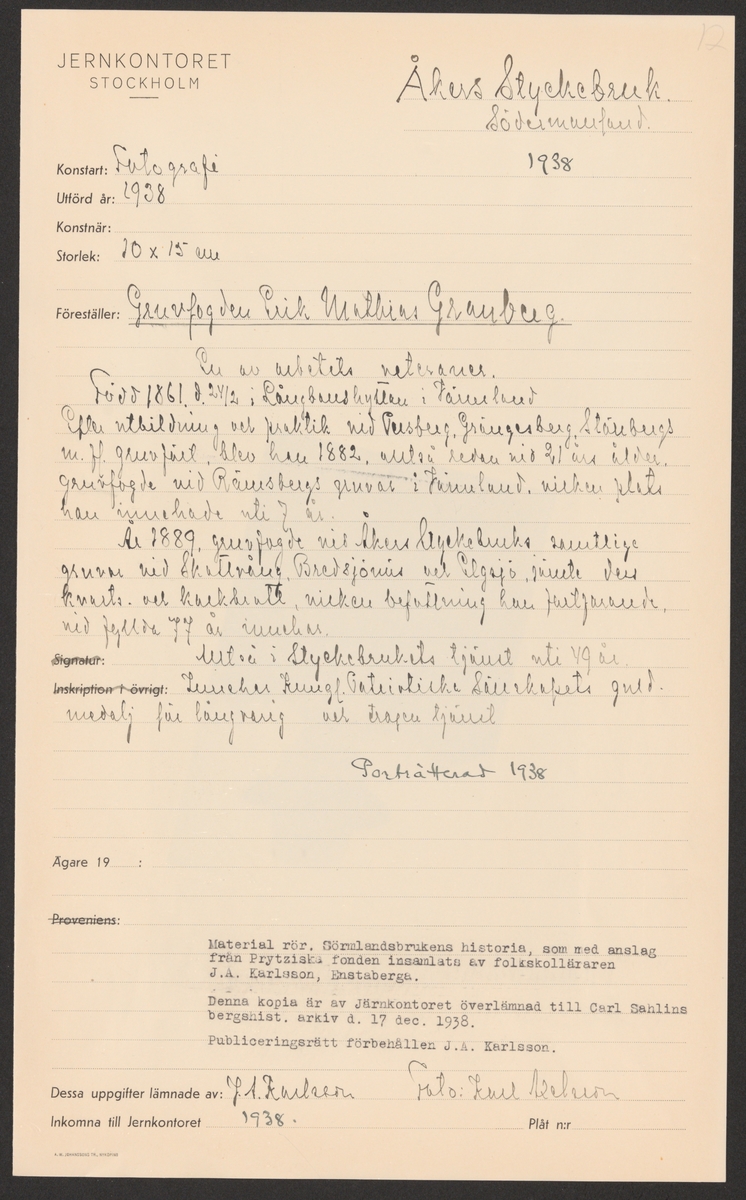 12
JERNKONTORET
STOCKHOLM
Åkers Styckebruk.
Södermanland.
1938
Konstart: Fotografi
Utförd år: 1938
Konstnär:
Storlek: 10 x 15 cm
Föreställer: Gruvfogden Erik Mathias Granberg.
En av arbetets veteraner.
Född 1861. d. 24/2 i Långbanshyttan i Värmland
Efter utbildning och praktik vid Persberg, Grängesberg, Stånbergs
m. fl. gruvfält, blev han 1882, alltså redan vid 21 års ålder,
gruvfogde vid Rämsbergs gruvor i Värmland, vilken plats
han innehade uti 7 år.
År 1889, gruvfogde vid Åkers Styckebruks samtliga
gruvor vid Skottvång, Bredsjönäs och Elgsjö, jämte dess
kvarts- och kalkbrott, vilken befattning han fortfarande,
vid fyllda 77 år innehar.
Signatur: Alltså i Styckebrukets tjänst uti 49 år.
Inskription i övrigt: Innehar Kungl. Patriotiska Sällskapets guld-
medalj för långvarig och trogen tjänst
Porträtterad 1938
Ägare 19 :
Proveniens:
Material rör. Sörmlandsbrukens historia, som med anslag
från Prytziska fonden insamlats av folkskolläraren
J.A. Karlsson, Enstaberga.
Denna kopia är av Järnkontoret överlämnad till Carl Sahlins
bergshist. arkiv d. 17 dec. 1938.
Publiceringsrätt förbehållen J.A. Karlsson.
Dessa uppgifter lämnade av: J. A. Karlsson Foto: Karl Axelsson
Inkomna till Jernkontoret 1938.
Plåt n:r